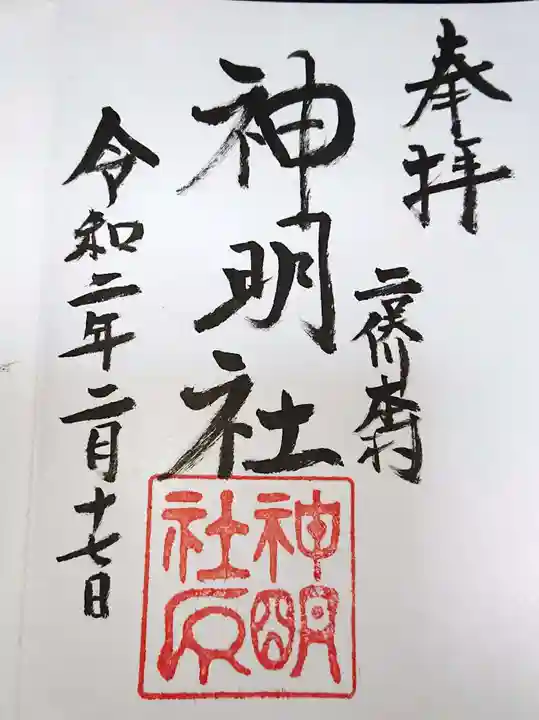 奉拝
二俣川本村
神明社
令和二年二月十七日
神明
社印